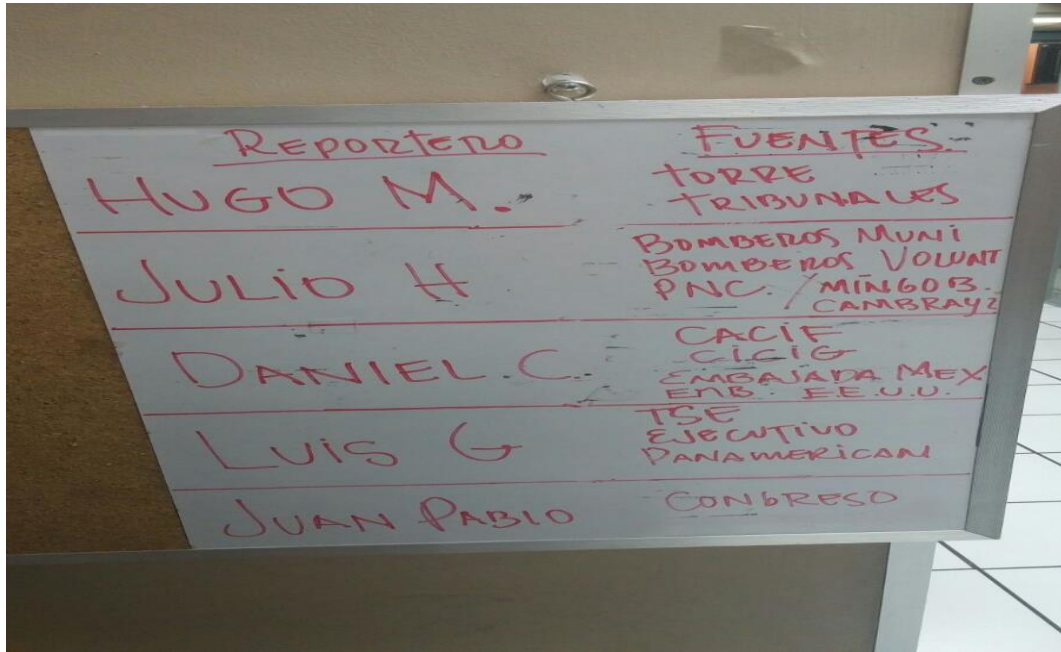 REPORTERO FUENTES
HUGO M. TORRE
TRIBUNALES
JULIO H BOMBEROS MUNI
BOMBEROS VOLUNT
PNC. / MINGOB.
CAMBRAY2
DANIEL C. CACIF
CICIG
EMBAJADA MEX
EMB. E.E.U.U.
LUIS G TSE
EJECUTIVO
PANAMERICAN
JUAN PABLO CONGRESO